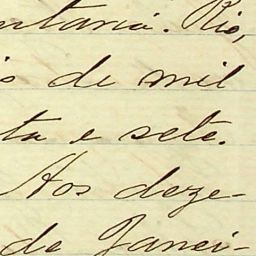 ntaria. Rio,
s de mil
ta e sete.
Aos deze-
de Janei-